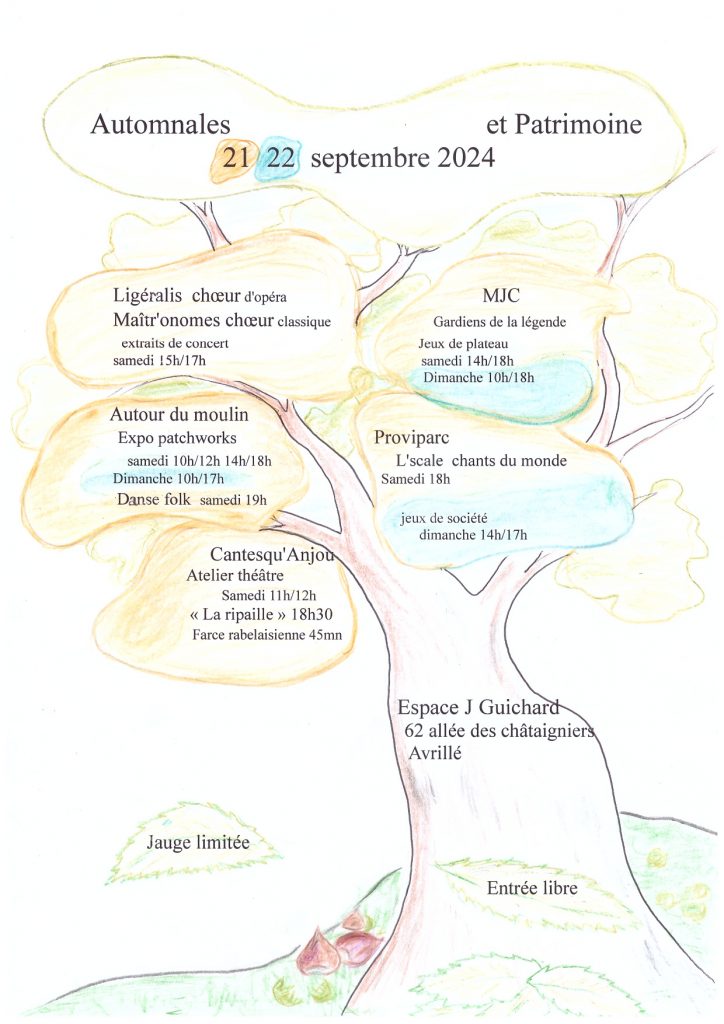 Automnales et Patrimoine
21 22 septembre 2024
Ligéralis chœur d'opéra
Maîtr'onomes chœur classique
extraits de concert
samedi 15h/17h
MJC
Gardiens de la légende
Jeux de plateau
samedi 14h/18h
Dimanche 10h/18h
Autour du moulin
Expo patchworks
samedi 10h/12h 14h/18h
Dimanche 10h/17h
Danse folk samedi 19h
Proviparc
L'scale chants du monde
Samedi 18h
jeux de société
dimanche 14h/17h
Cantesqu'Anjou
Atelier théâtre
Samedi 11h/12h
« La ripaille » 18h30
Farce rabelaisienne 45mn
Espace J Guichard
62 allée des châtaigniers
Avrillé
Jauge limitée
Entrée libre